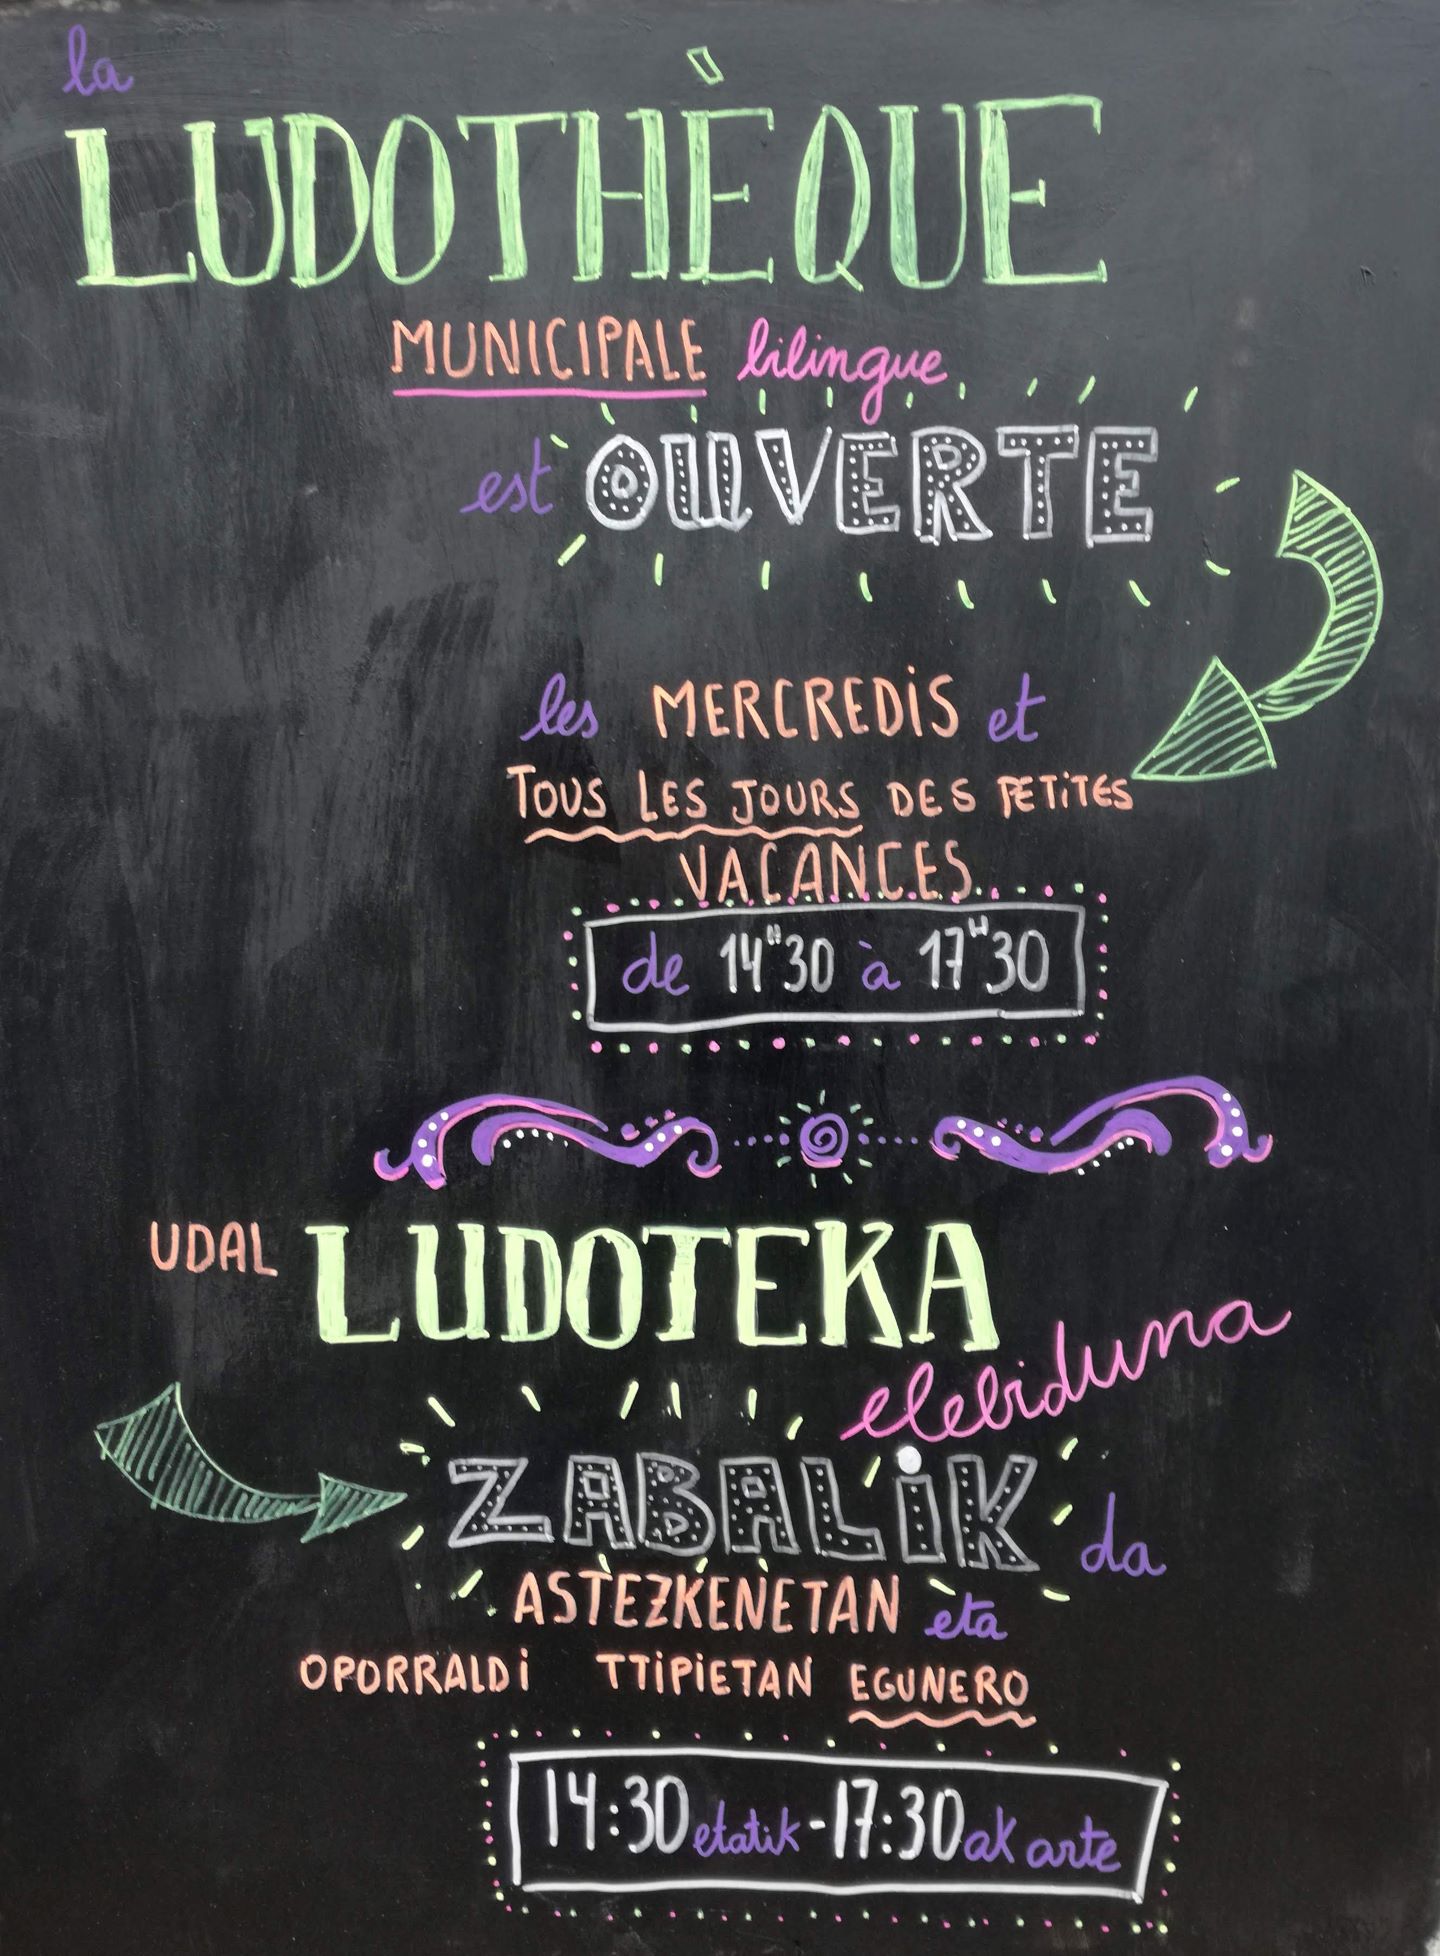 la
LUDOTHÈQUE
MUNICIPALE bilingue
est OUVERTE
les MERCREDIS et
TOUS LES JOURS DES PETITES
VACANCES
de 14H30 à 17H30
UDAL LUDOTEKA
elebiduna
ZABALIK da
ASTEZKENETAN eta
OPORRALDI TTIPIETAN EGUNERO
14:30etatik-17:30ak arte